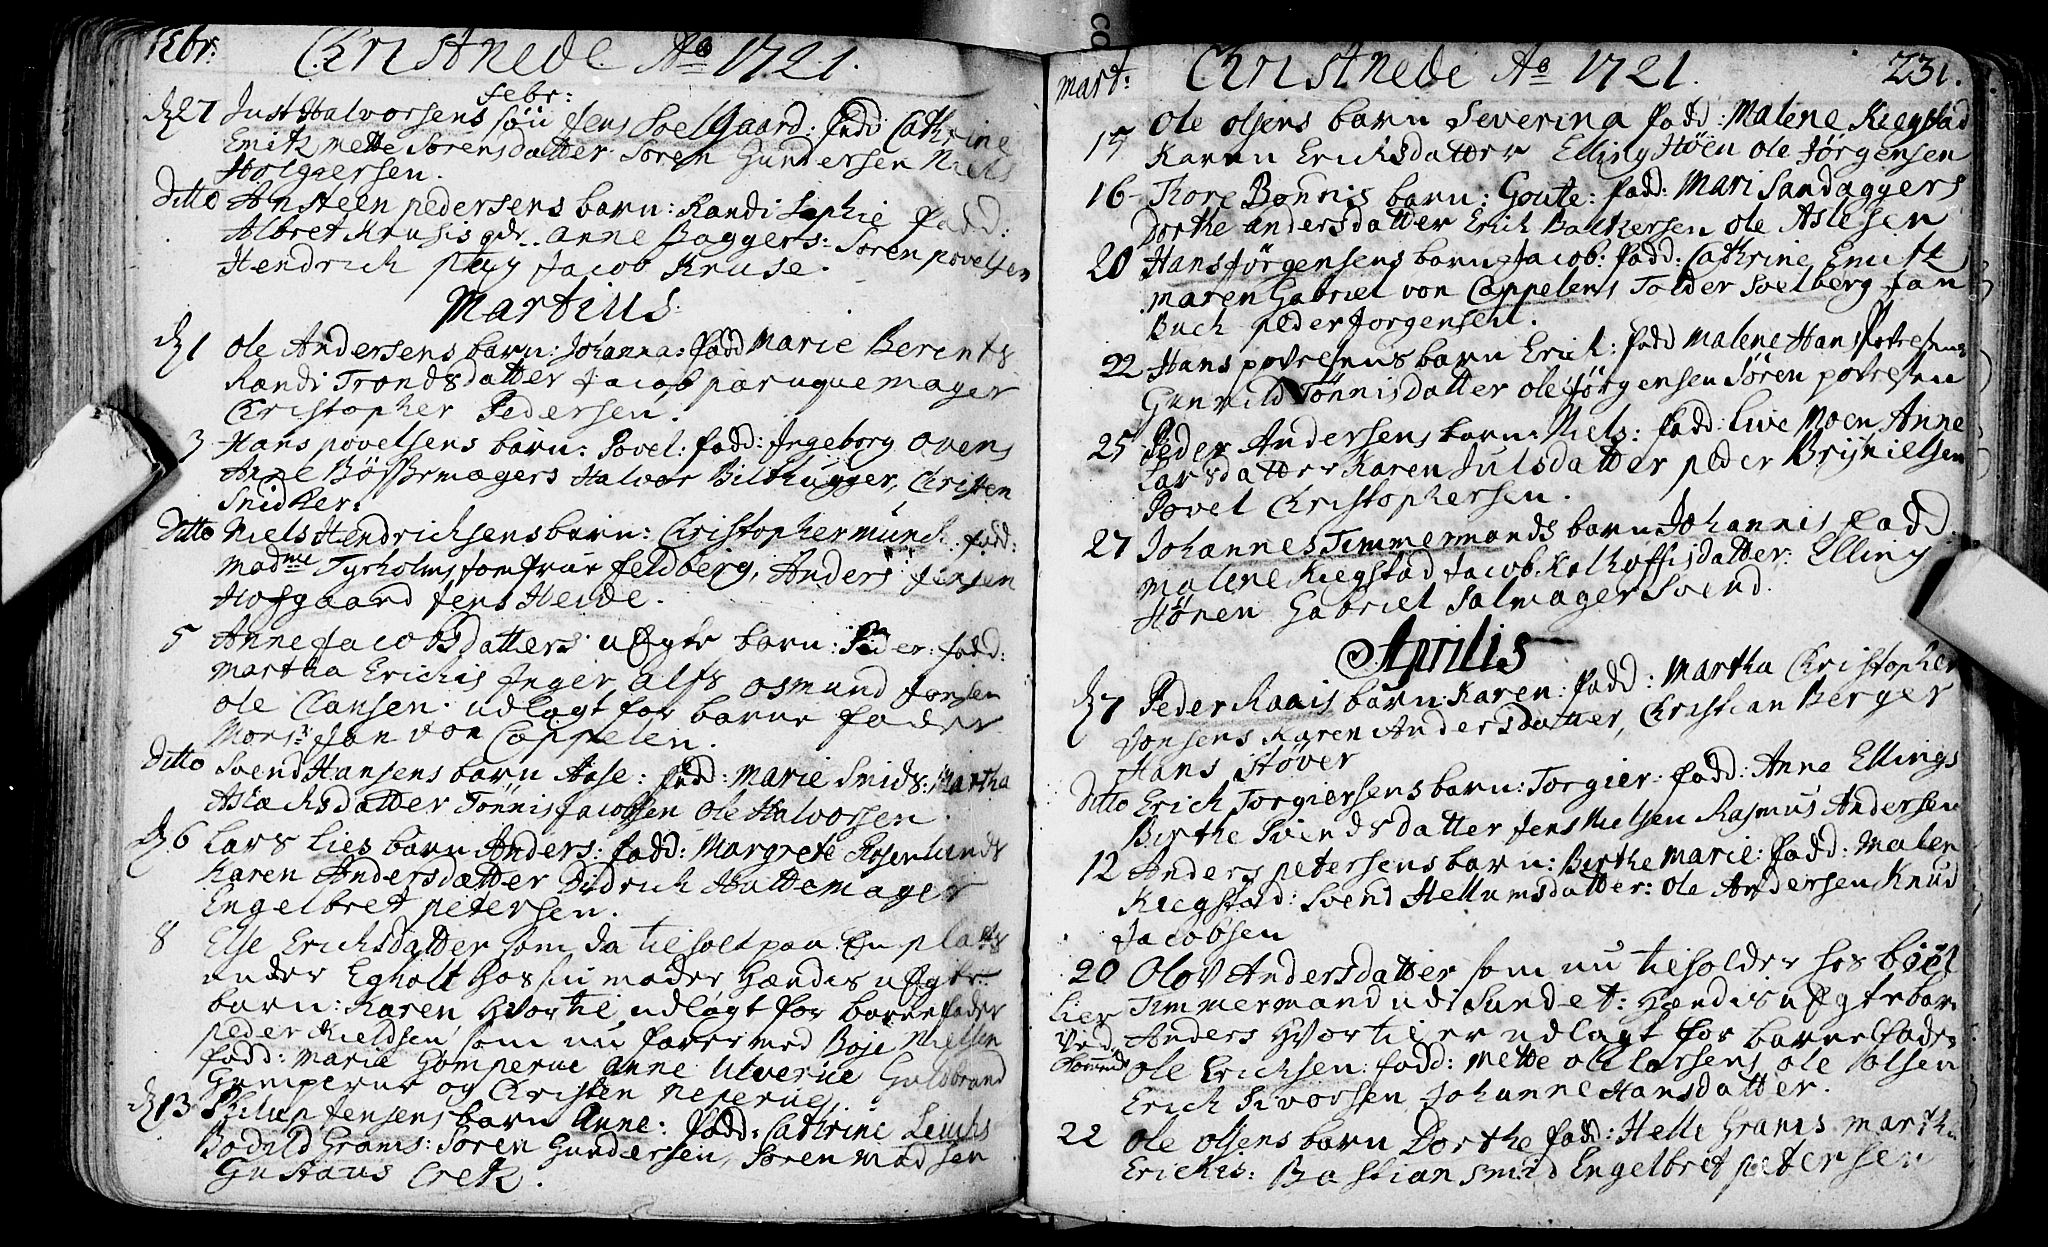 Febr: Christnede Ao 1721.
Febr:
d 27 Just Halvorsens søn Jens Soelgaard: fadd Cathrine
Emitz Mette Sørensdatter Søren Gundersen Niels
Holgersen.
Ditto Ansteen pedersens barn: Randi Sophie fadd:
Albret Krusis Anne Baggers: Søren povelsen
Hendrich Jacob Kruse.
Martius:
d 1 Ole Andersens barn: Johanna: fadd Marie Berents
Randi Trondsdatter Jacob paruquemager
Christopher Pedersen.
3 Hans povelsens barn: Povel: fadd: Ingeborg Ovens
Anne Bøssemagers Halvor Bilthugger, Christen
Snidker.
Ditto Niels Hendrichsens barn: Christopher Munch fadd:
Madme Tyrholms Jomfrue Feldberg, Anders Jensen
Hofgaard Jens Heide.
5 Anne Jacobsdatters uægte barn: Peder: fadd:
Martha Erichis Inger Alfs Osmund Jonsen
Ole Clausen. udlagt for barne fader
Monsr Jan von Cappelen.
Ditto Svend Hansens barn Aase: fadd: Marie Smids: Martha
Aslachsdatter Tønnis Jacobsen Ole Halvorsen.
d 6 Lars Lies barn Anders: fadd: Margrete Rosenlunds
Karen Andersdatter Didrich Hattemager
Engelbret petersen.
8 Else Erichsdatter som da tilholt paa En plads
under Egholt hos sin moder hændis uægte
barn: Karen hvortil udlagt for barne fader
peder Kieldsen som nu farer med Boje Nielsen
fadd: Marie Gomperue Anne Ulverue Guldbrand
Gumperue og Christen Neperue
d 13 Philup Jensens barn Anne: fadd: Cathrine
Bodild Grams: Søren Gundersen, Søren Madsen
Gustavs Crek.
Mart: Christnede Ao 1721. 231.
15 Ole Olsens barn Severina fadd: Malene Kiegstad
Karen Erichsdatter Elling Høen Ole Jørgensen
16 Tore Bonnis barn: Goute: fadd: Mari Sandaggers
Dorthe Andersdatter Erich Baltzersen Ole Aslesen
20 Hans Jørgensens barn Jacob: fadd: Cathrine Emitz
Maren Gabriel von Cappelens Tolder Svelberg Jan
Buch peder Jorgensen.
22 Hans povelsens barn Erich: fadd Malene Hans
Gunnild Tønnisdatter Ole Jørgensen Søren povelsen
25 Peder Andersens barn: Niels: fadd: Live Moen Anne
Larsdatter Karen Julsdatter peder Brynielsen
Povel Christophersen.
27 Johannes Timmermands barn Johannis fadd.
Malene Kiegstad Jacob Kalhoffisdatter: Elling
Hønen Gabriel Salmager Svend.
Aprilis
d 7 Peder Raais barn: Karen: fadd: Martha Christopher
Jonsens Karen Andersdatter, Christian Berger
Hans Støver
Ditto Erich Torgiersens barn: Torgier: fadd: Anne Ellings
Birthe Svendsdatter Jens Nielsen Rasmus Andersen
12 Anders petersens barn: Birthe Marie: fadd: Malen
Kiegstad: Svend Hellumsdatter: Ole Andersen Knud
Jacobsen
20 Olov Andersdatter som nu tilholder hos
Timmermand udi Sundet: hændis uægte barn
Anders hvortil er udlagt for barne fader
Ole Erichsen: fadd: Mette Ole Larsens Ole Olsen
Erich Sivorsen Johanne Hansdatter.
22 Ole Olsens barn Dorthe fadd: Helle Grams Martha
Erichis: Bastian Smid Engelbret petersen